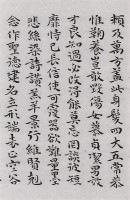 賴及萬方蓋此身髮四大五常恭
惟鞠養豈敢毀傷女慕貞潔男效
才良知過必改得能莫忘罔談彼短
靡恃己長信使可覆器欲難量墨
悲絲染詩讚羔羊景行維賢剋
念作聖德建名立形端表正空谷